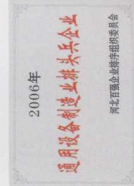 2006年
通用设备制造业排头兵企业
河北百强企业排序组织委员会